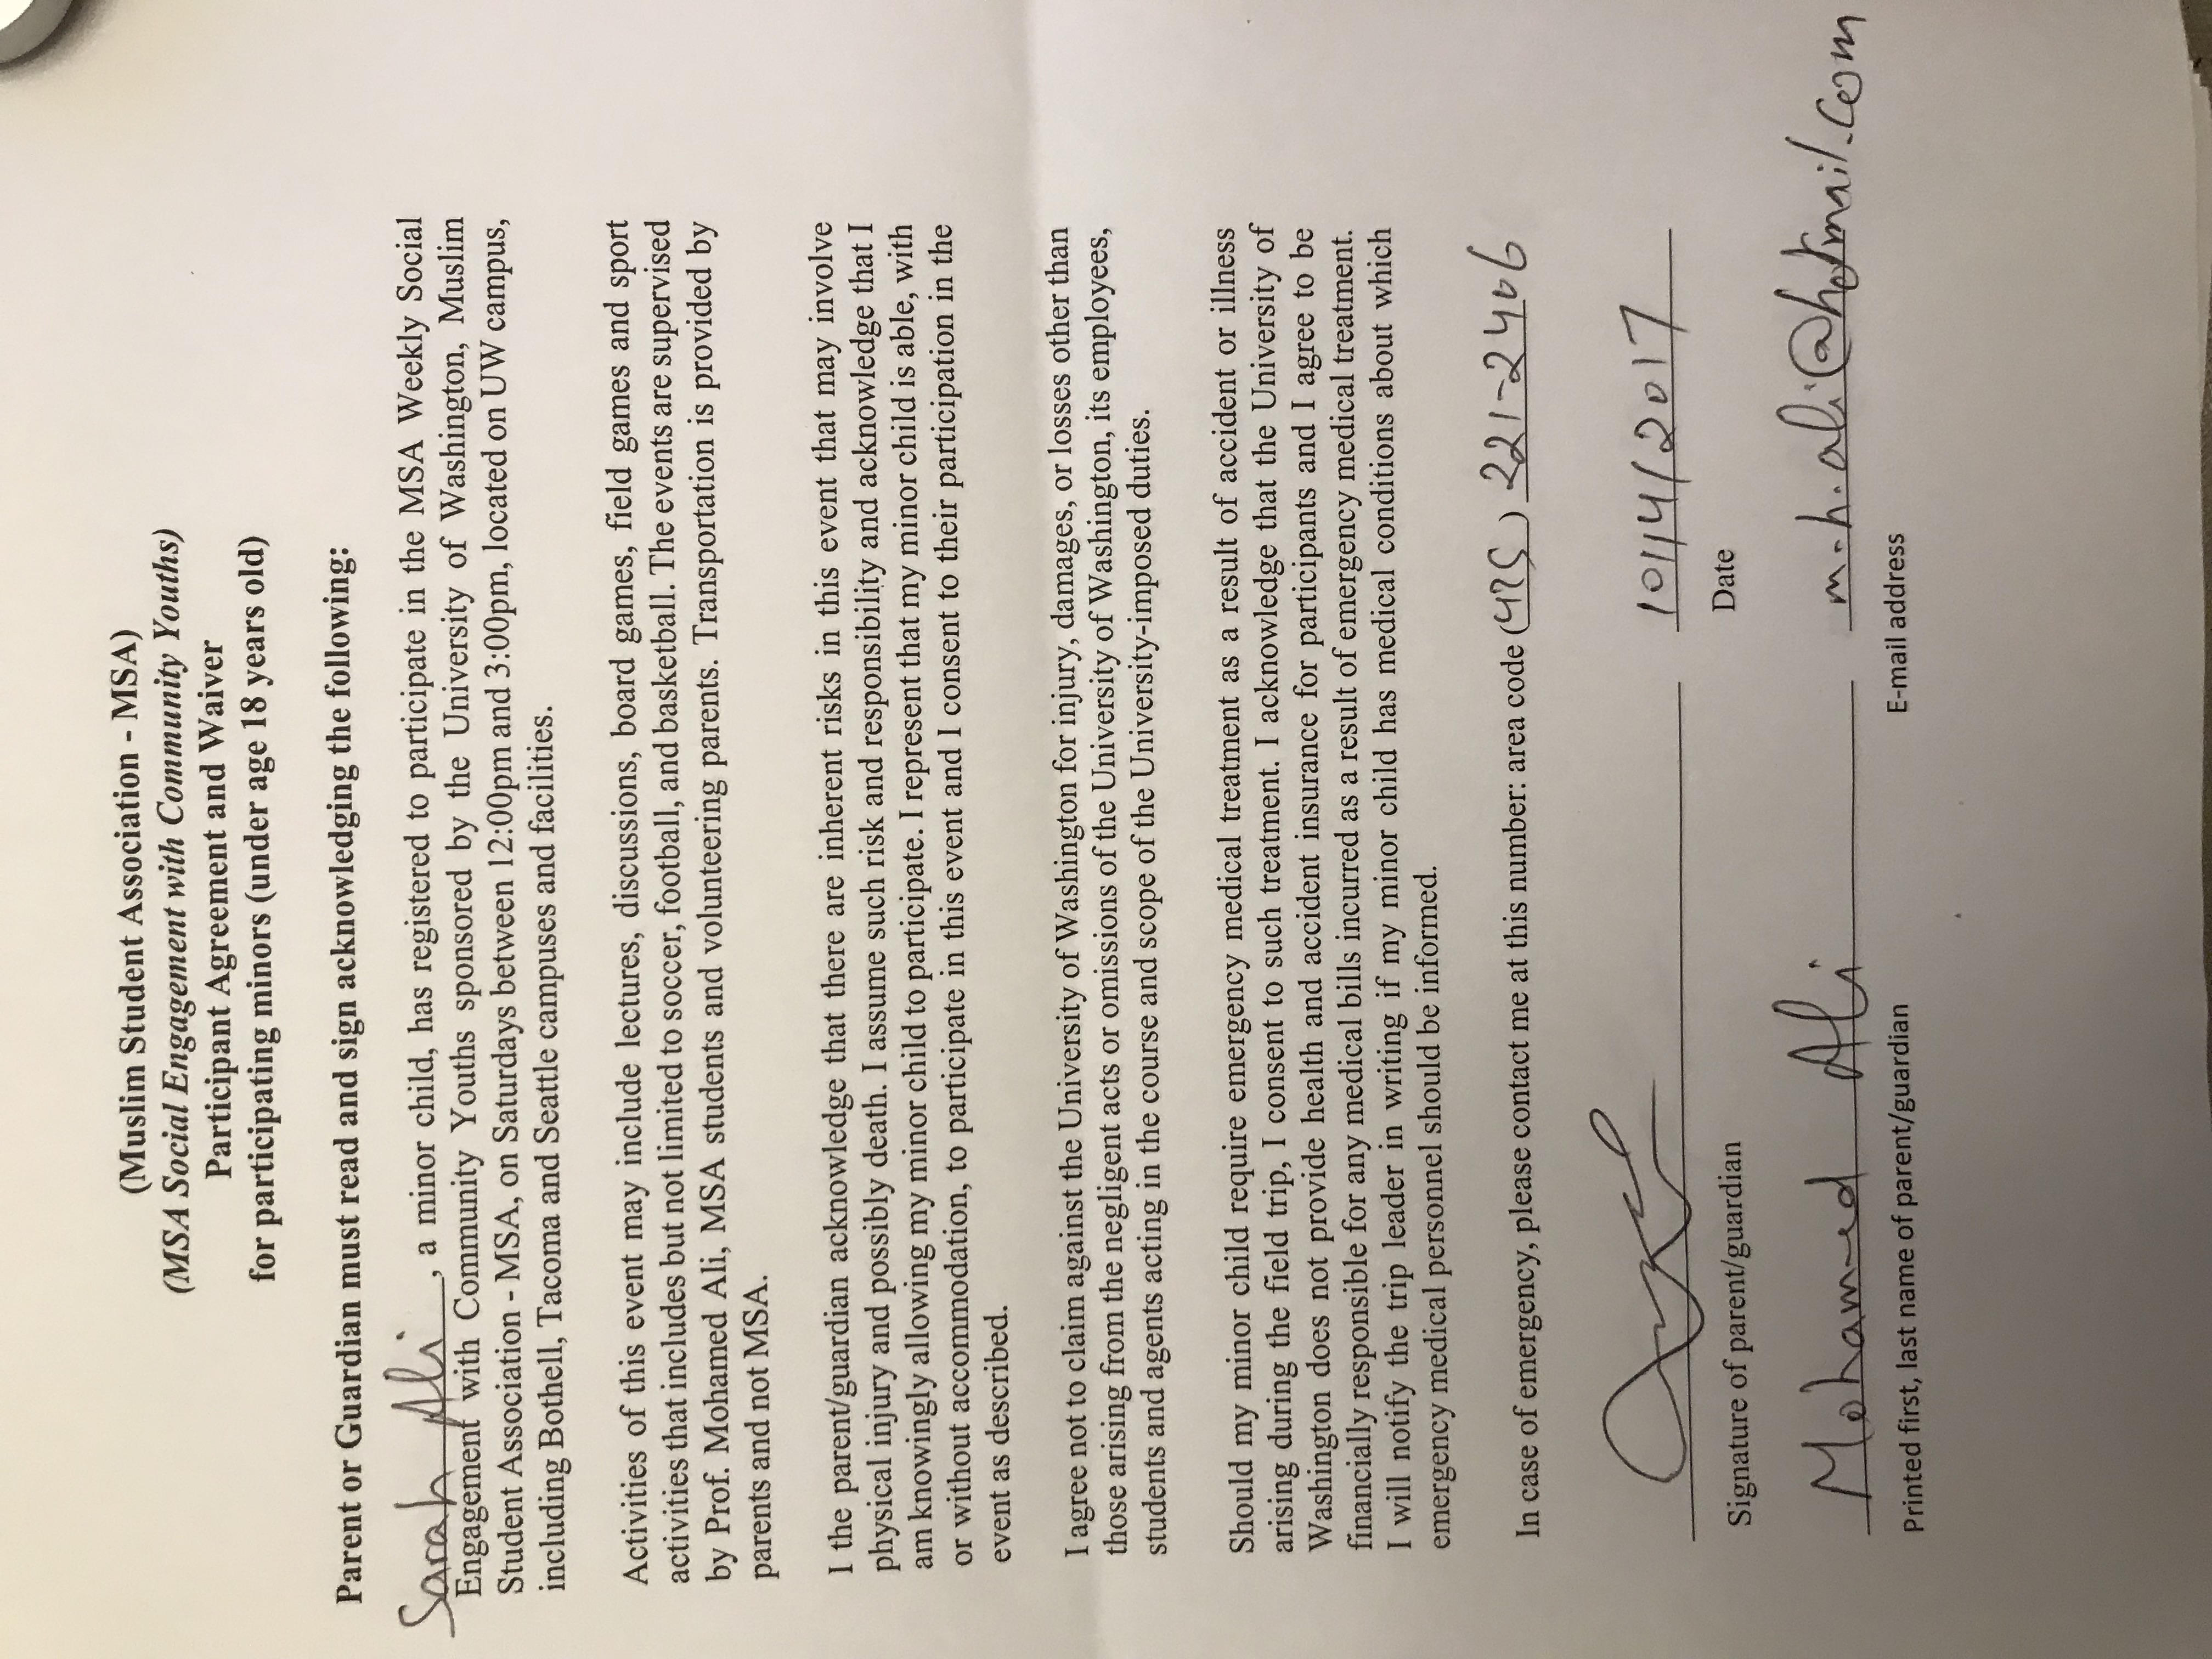 (Muslim Student Association - MSA)
(MSA Social Engagement with Community Youths)
Participant Agreement and Waiver
for participating minors (under age 18 years old)
Parent or Guardian must read and sign acknowledging the following:
Sarah Ali, a minor child, has registered to participate in the MSA Weekly Social
Engagement with Community Youths sponsored by the University of Washington, Muslim
Student Association - MSA, on Saturdays between 12:00pm and 3:00pm, located on UW campus,
including Bothell, Tacoma and Seattle campuses and facilities.
Activities of this event may include lectures, discussions, board games, field games and sport
activities that includes but not limited to soccer, football, and basketball. The events are supervised
by Prof. Mohamed Ali, MSA students and volunteering parents. Transportation is provided by
parents and not MSA.
I the parent/guardian acknowledge that there are inherent risks in this event that may involve
physical injury and possibly death. I assume such risk and responsibility and acknowledge that I
am knowingly allowing my minor child to participate. I represent that my minor child is able, with
or without accommodation, to participate in this event and I consent to their participation in the
event as described.
I agree not to claim against the University of Washington for injury, damages, or losses other than
those arising from the negligent acts or omissions of the University of Washington, its employees,
students and agents acting in the course and scope of the University-imposed duties.
Should my minor child require emergency medical treatment as a result of accident or illness
arising during the field trip, I consent to such treatment. I acknowledge that the University of
Washington does not provide health and accident insurance for participants and I agree to be
financially responsible for any medical bills incurred as a result of emergency medical treatment.
I will notify the trip leader in writing if my minor child has medical conditions about which
emergency medical personnel should be informed.
In case of emergency, please contact me at this number: area code (425) 221-2406
10/14/2017
Signature of parent/guardian Date
Mohamed Ali m.h.ali@hotmail.com
Printed first, last name of parent/guardian E-mail address